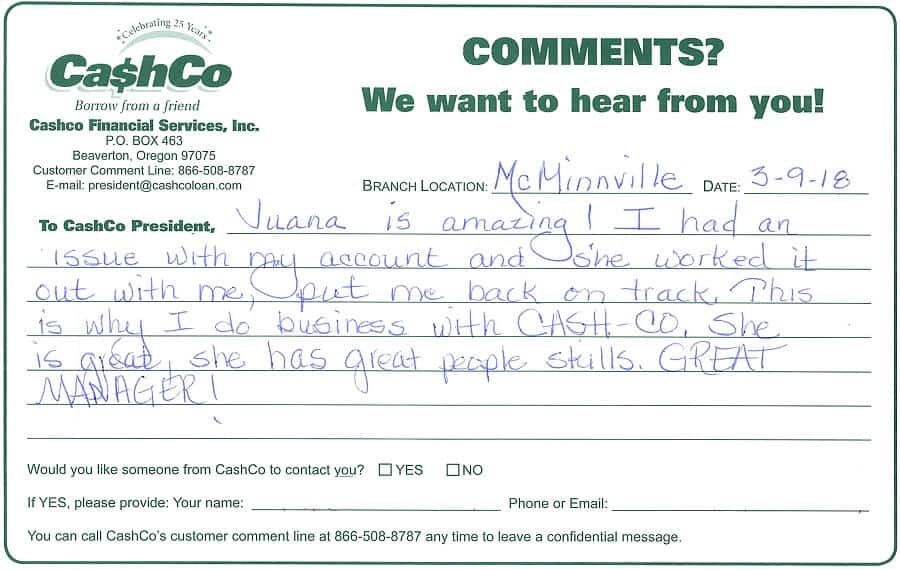 Celebrating 25 Years
Ca$hCo
Borrow from a friend
Cashco Financial Services, Inc.
P.O. BOX 463
Beaverton, Oregon 97075
Customer Comment Line: 866-508-8787
E-mail: president@cashcoloan.com
COMMENTS?
We want to hear from you!
BRANCH LOCATION: McMinnville DATE: 3-9-18
To CashCo President, Juana is amazing! I had an
issue with my account and she worked it
out with me, put me back on track. This
is why I do business with CASH-CO. She
is great, she has great people skills. GREAT
MANAGER!
Would you like someone from CashCo to contact you? ☐ YES ☐ NO
If YES, please provide: Your name: Phone or Email:
You can call CashCo's customer comment line at 866-508-8787 any time to leave a confidential message.